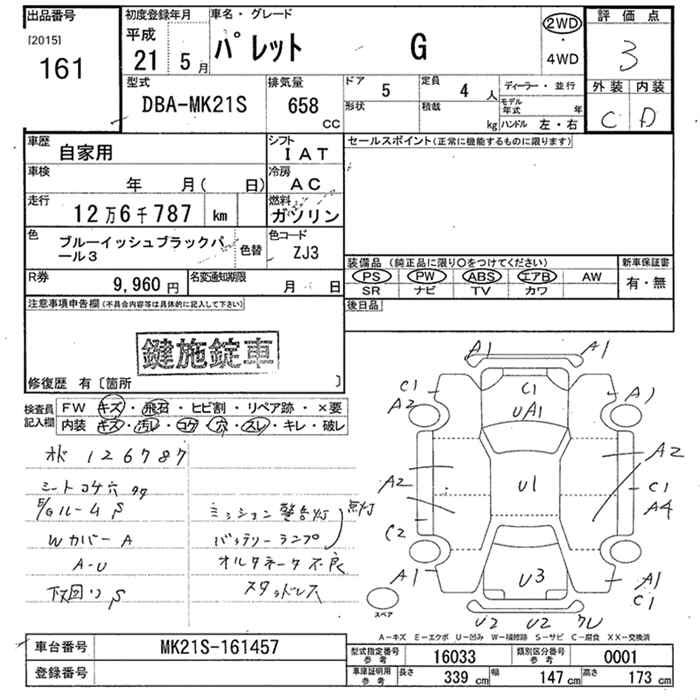 出品番号
[2015]
161
初度登録年月
平成
21 5月
車名・グレード
パレット G
2WD
・
4WD
評価点
3
外装 内装
C D
型式
DBA-MK21S
排気量
658
CC
ドア 5
定員 4 人
形状
積載 kg
ディーラー・並行
モデル年式 年
ハンドル 左・右
車歴
自家用
シフト
IAT
車検
年 月( 日)
冷房
AC
走行
12万6千787 km
燃料
ガソリン
色
ブルーイッシュブラックパール3
色替
色コード
ZJ3
R券
9,960 円
名変通知期限
月 日
セールスポイント(正常に機能するものに限ります)
装備品 (純正品に限り○をつけてください)
PS PW ABS エアB AW
SR ナビ TV カワ
新車保証書
有・無
後日品
注意事項申告欄(不具合内容等は具体的に記入して下さい)
鍵施錠車
修復歴 有〔箇所 〕
検査員記入欄
FW キズ・飛石・ヒビ割・リペア跡・×要
内装 キズ・汚レ・コゲ・穴・スレ・キレ・破レ
オド 126787
シートコゲ穴
E/Gルーム S
ミッション警告灯
点灯
Wカバー A
バッテリーランプ
A-U
オルタネータ不良
下回り S
スタッドレス
A1 A1
C1
A2
C1
UA1
A1
A2
U1
A2
C1
A4
C2
A1
U3
A1
C1
スペア
U2 U2 ワレ
A－キズ E－エクボ U－凹み W－補修跡 S－サビ C－腐食 XX－交換済
車台番号
MK21S-161457
登録番号
型式指定番号
参考
16033
類別区分番号
参考
0001
車庫証明用
参考
長さ 339 cm
幅 147 cm
高さ 173 cm